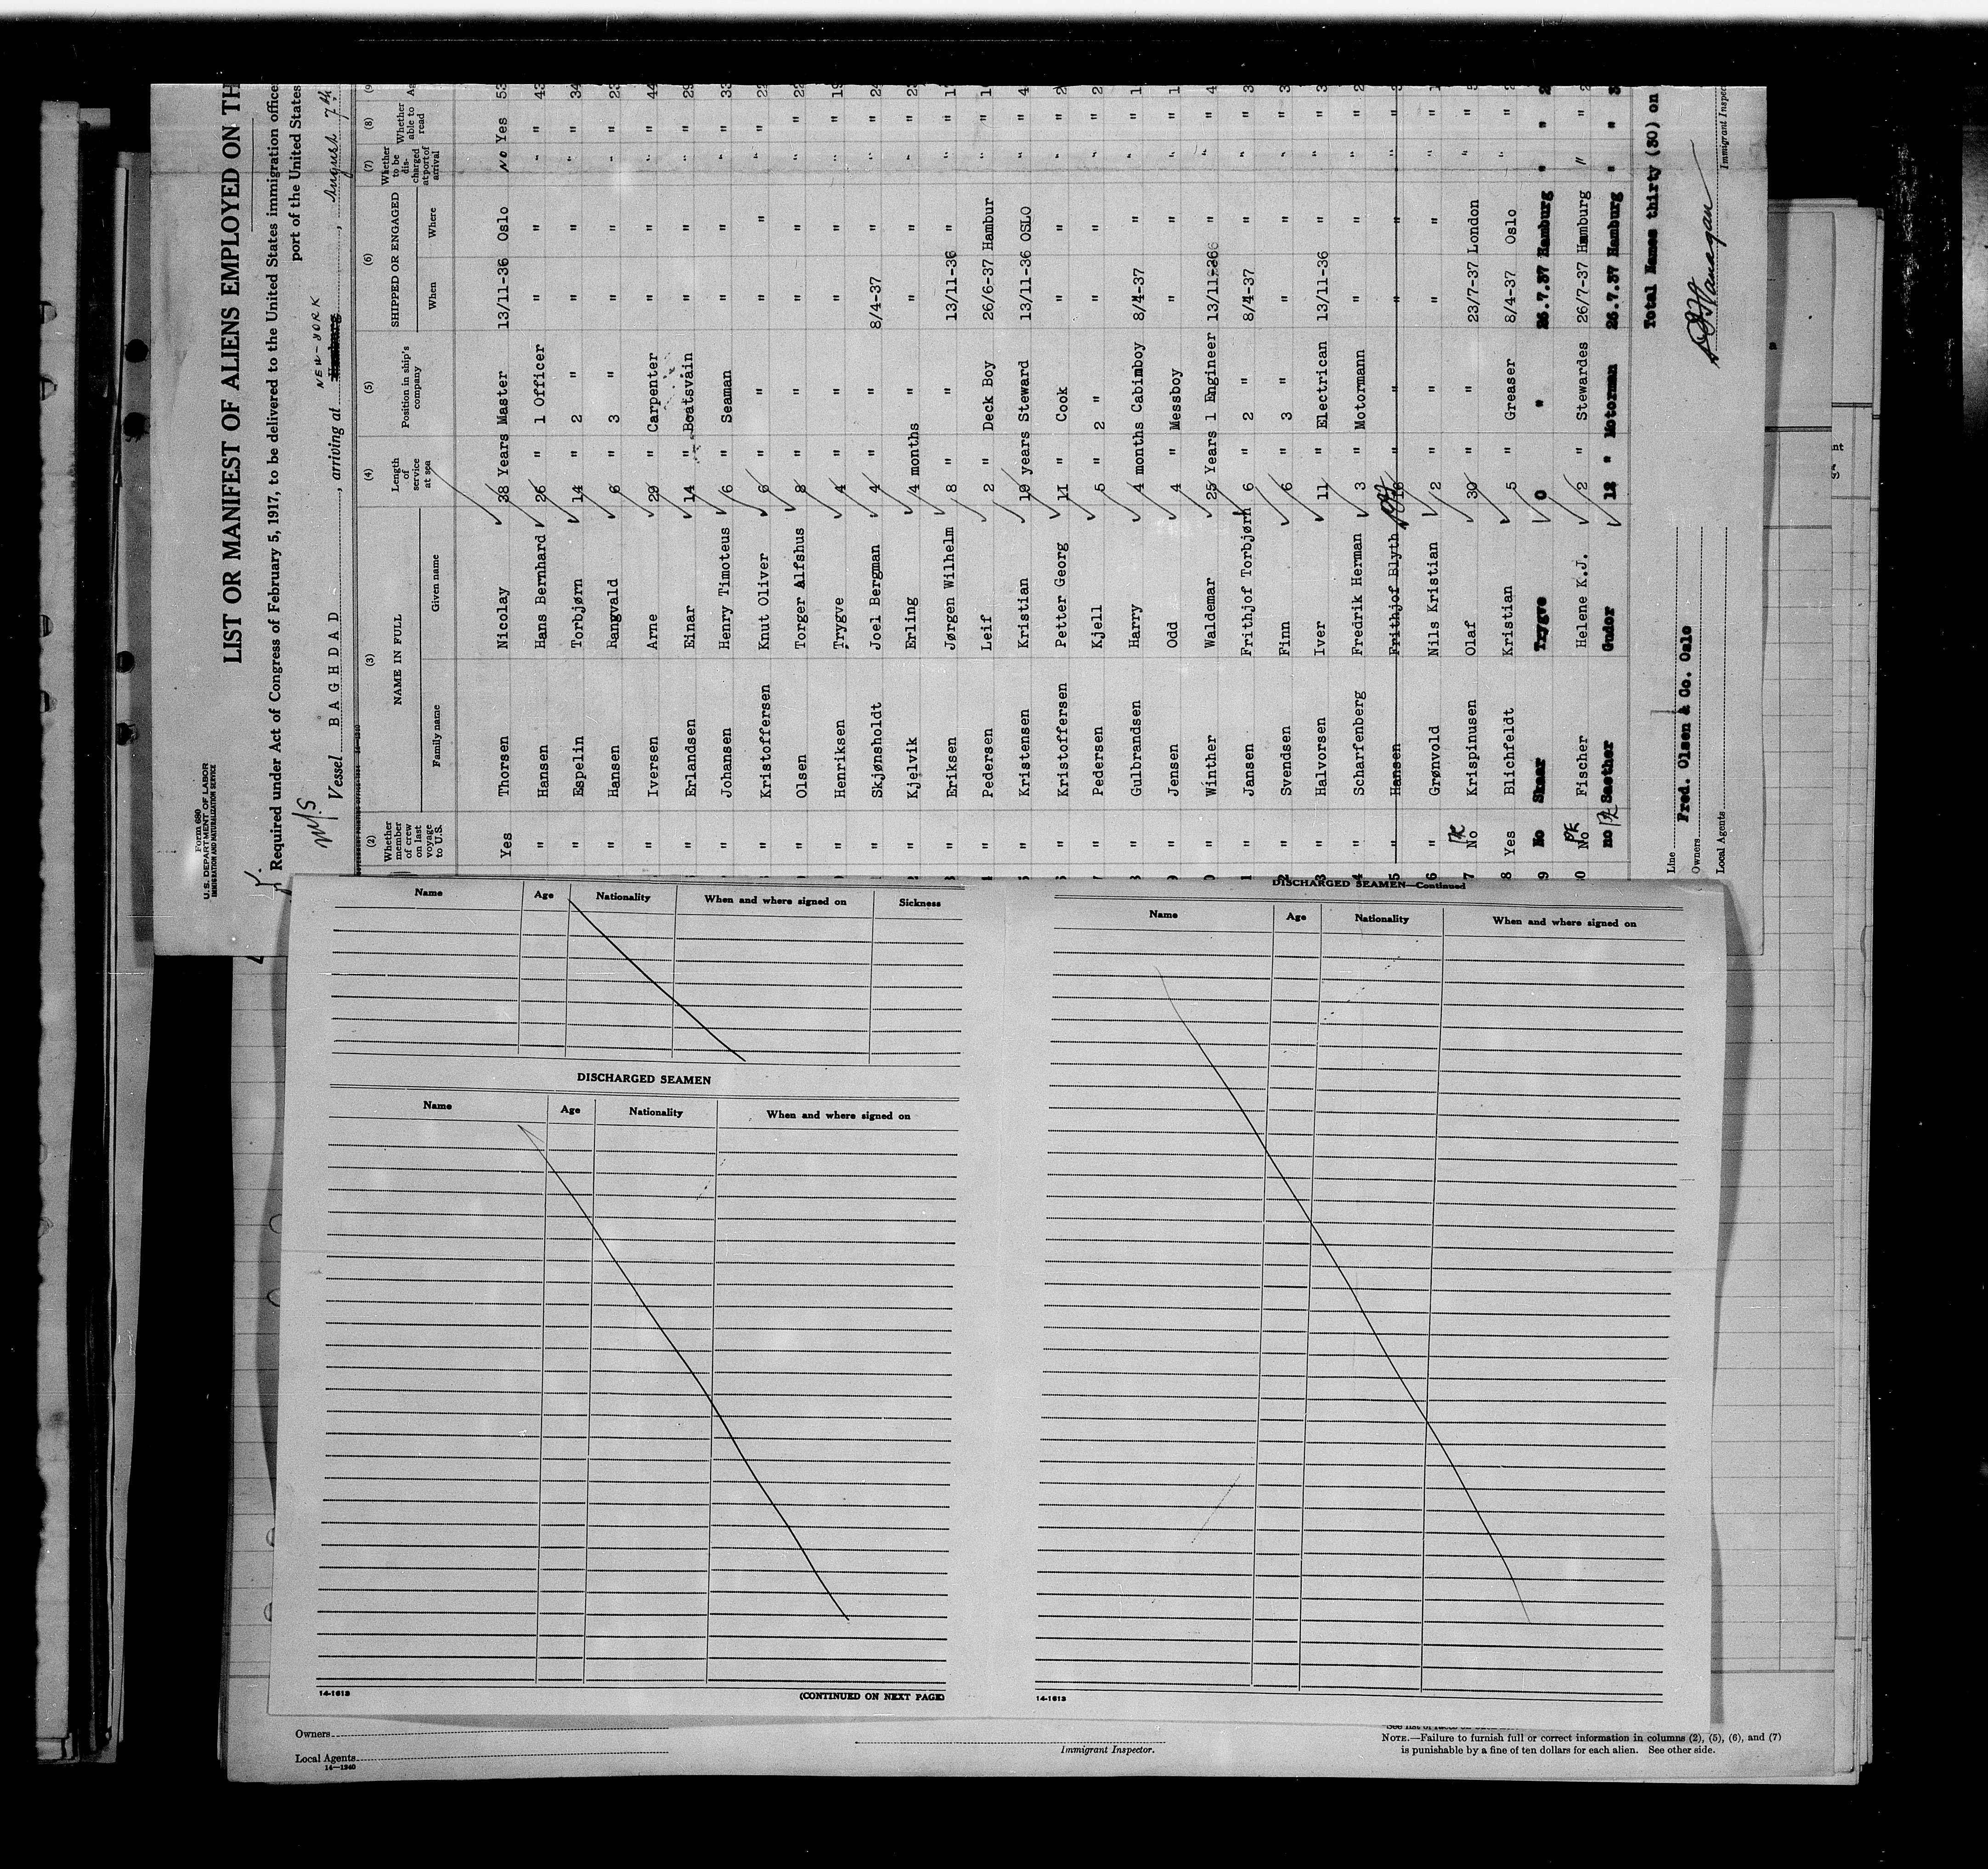 Form 680
U.S. DEPARTMENT OF LABOR
IMMIGRATION AND NATURALIZATION SERVICE
LIST OR MANIFEST OF ALIENS EMPLOYED ON TH
Required under Act of Congress of February 5, 1917, to be delivered to the United States immigration office
port of the United States
M/S
Vessel BAGHDAD, arriving at NEW-YORK, August 7th
(2) (3) (4) (5) (6) (7) (8) (9
Whether member of crew on last voyage to U.S. NAME IN FULL Family name Given name Length of service at sea Position in ship's company SHIPPED OR ENGAGED When Where Whether to be discharged at port of arrival Whether able to read Ag
Yes Thorsen Nicolay 38 Years Master 13/11-36 Oslo NO Yes 53
" Hansen Hans Bernhard 26 " 1 Officer " " " " 43
" Espelin Torbjørn 14 " 2 " " " " " 34
" Hansen Rangvald 6 " 3 " " " " " 23
" Iversen Arne 29 " Carpenter " " " " 44
" Erlandsen Einar 14 " Boatsvain " " " " 29
" Johansen Henry Timoteus 6 " Seaman " " " " 33
" Kristoffersen Knut Oliver 6 " " " " " " 22
" Olsen Torger Alfshus 8 " " " " " " 22
" Henriksen Trygve 4 " " " " " " 19
" Skjønsholdt Joel Bergman 4 " " 8/4-37 " " " 24
" Kjelvik Erling 4 months " " " " "
" Eriksen Jørgen Wilhelm 8 " " 13/11-36 " " " 1
" Pedersen Leif 2 " Deck Boy 26/6-37 Hambur " " 1
" Kristensen Kristian 19 years Steward 13/11-36 OSLO " " 4
" Kristoffersen Petter Georg 11 " Cook " " " " 2
" Pedersen Kjell 5 " 2 " " " " " 2
" Gulbrandsen Harry 4 months Cabimboy 8/4-37 " " " 1
" Jensen Odd 4 " Messboy " " " " 1
" Winther Waldemar 25 Years 1 Engineer 13/11-36 " " " 4
" Jansen Frithjof Torbjørn 6 " 2 " 8/4-37 " " " 3
" Svendsen Finn 6 " 3 " " " " " 3
" Halvorsen Iver 11 " Electrican 13/11-36 " " " 3
" Scharfenberg Fredrik Herman 3 " Motormann " " " " 2
" Hansen Frithjof Blyth " " " " " "
" Grønvold Nils Kristian 2 " " " " " " 1
No Krispinusen Olaf 30 " " 23/7-37 London " "
Yes Blichfeldt Kristian 5 " Greaser 8/4-37 Oslo " " 2
No Skaar Trygve 0 " 26.7.37 Hamburg " " 2
No Fischer Helene K.J. 2 " Stewardes 26/7-37 Hamburg " " 2
no Saether Gudor 12 " Motorman 26.7.37 Hamburg " " 3
Total Names thirty (30) on
Line
Fred. Olsen & Co. Oslo
Owners
Local Agents
Immigrant Inspec
Name Age Nationality When and where signed on Sickness
DISCHARGED SEAMEN
Name Age Nationality When and where signed on
14-1613
(CONTINUED ON NEXT PAGE)
DISCHARGED SEAMEN—Continued
Name Age Nationality When and where signed on
14-1613
Owners
Local Agents
14—1240
Immigrant Inspector.
NOTE.—Failure to furnish full or correct information in columns (2), (5), (6), and (7)
is punishable by a fine of ten dollars for each alien. See other side.